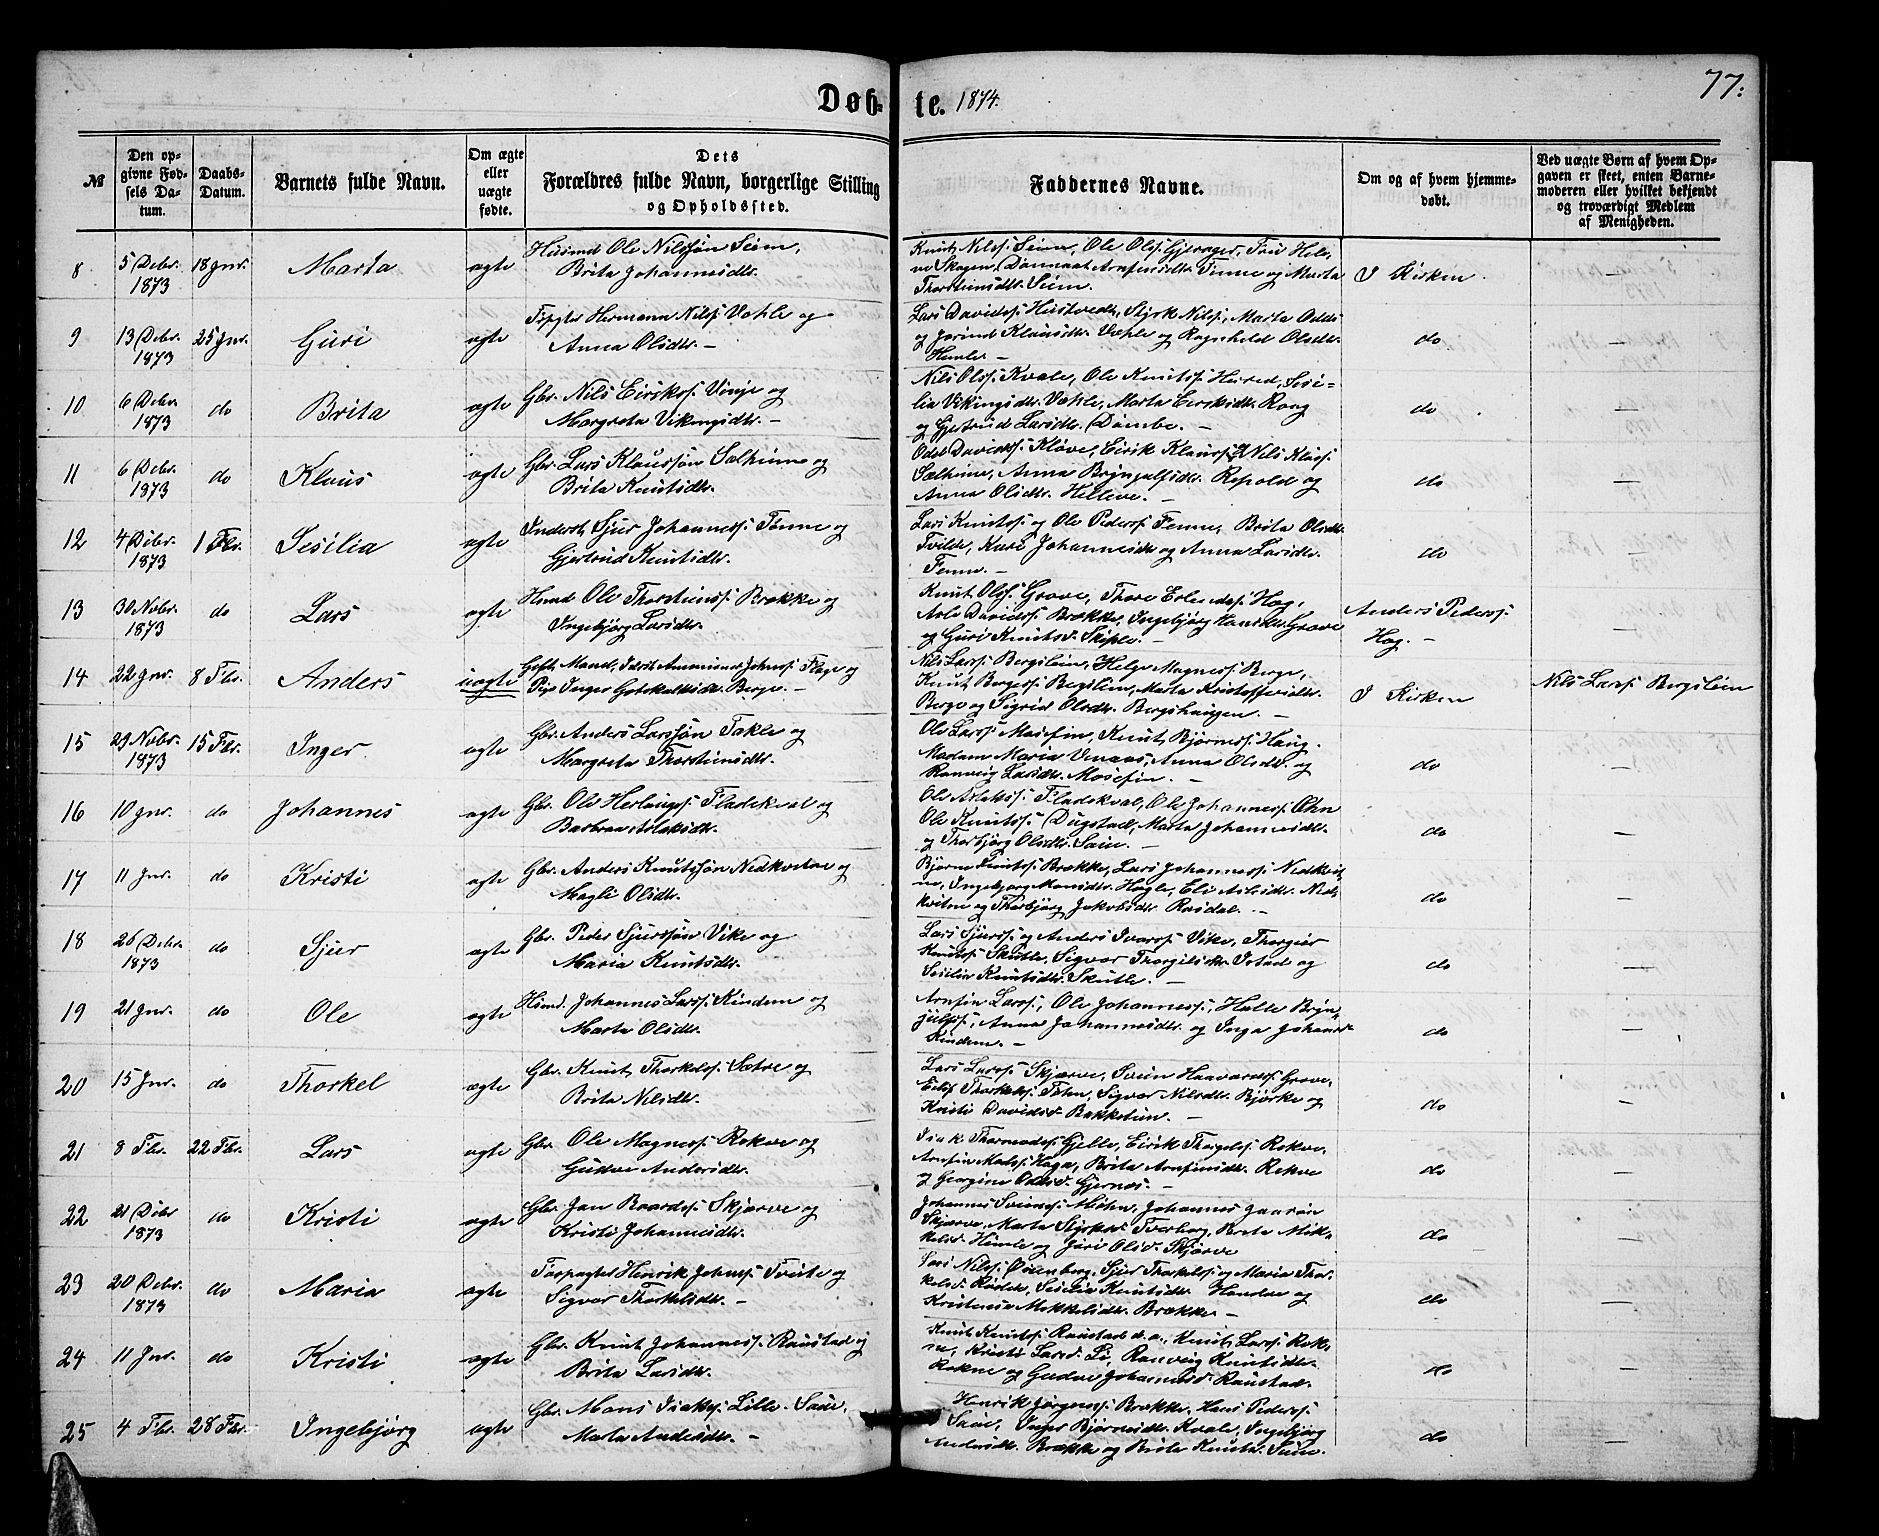 77.
Døbte. 1874.
№
Den opgivne Fødsels Datum.
Daabs-Datum.
Barnets fulde Navn.
Om ægte eller uægte fødte.
Dets Forældres fulde Navn, borgerlige Stilling og Opholdssted.
Faddernes Navne.
Om og af hvem hjemmedøbt.
Ved uægte Børn af hvem Opgaven er skeet, enten Barnemoderen eller hvilket bekjendt og troværdigt Medlem af Menigheden.
8 5 Debr. 1873 18 Jnr. Marta ægte
Husmd Ole Nilssøn Seim,
Brita Johannesdtr.
Knut Nilss. Seim, Ole Olss. Gjerager,
Skogen, Arnfinsdtr. Finne og Marta
Thorsteinsdtr. Seim.
I Kirken —
9 13 Debr. 1873 25 Jnr. Guri ægte
Hermann Nilss. Væhle og
Anna Olsdtr. —
Lars Davidss. Hustvedt, Styrk Nilss., Marta Odds
og Jorind Klausdtr. Væhle og Ragnhild Olsdtr.
Himle —
do —
10 6 Debr. 1873 do Brita ægte
Gbr. Nils Eirikss. Vinje og
Margreta Vikingsdtr. —
Nils Olss. Kvale, Ole Knutss. Herred, Sesi-
lia Vikingsdtr. Væhle, Marta Eiriksdtr. Rong
og Gjertrud Larsdtr. Dømbe. —
do —
11 6 Debr. 1873 do Klaus ægte
Gbr. Lars Klaussøn Sælheim og
Brita Knutsdtr.
Odd Davidss. Kløve, Eirik Klauss. og Nils Klauss.
Sælheim, Anna Brynjulfsdtr. Repald og
Anna Olsdtr. Helleve. —
do —
12 4 Debr. 1873 1 Fbr. Sesilia ægte
Inderst Sjur Johanness. Finne og
Gjertrud Knutsdtr.
Lars Knutss. og Ole Pederss. Fenne, Brita Olsdtr.
Tvilde, Kari Johannesdtr. og Anna Larsdtr.
Fenne. —
do —
13 30 Nobr. 1873 do Lars ægte
Husmd Ole Thorsteinss. Brække og
Ingebjørg Larsdtr.
Knut Olss. Grove, Thore Erlendss. Hæg,
Arle Davidss. Brække, Ingebjørg Hansdtr. Grove
og Guri Knutsd. Skiple. —
Anders Pederss.
Hæg. —
—
14 22 Jnr. 8 Fbr. Anders uægte
Gift Mand, Johnss. Flage og
Pige Inger Gotskalksdtr. Berge. —
Nils Larss. Bergslien, Helge Magness. Berge,
Knut Bergess. Bergslien, Marta Kristoffersdtr.
Berge og Sigrid Olsdtr. Bergshaugen. —
I Kirken
Nils Larss. Bergslien
15 29 Nobr. 1873 15 Fbr. Inger ægte
Gbr. Anders Larssøn Takle og
Margreta Thorsteinsdtr.
Ole Larss. Mosefin, Knut Bjørness. Haug,
Madam Maria Venaas, Anna Olsdtr. og
Ranveig Larsdtr. Mosefin. —
do —
16 10 Jnr. do Johannes ægte
Gbr. Ole Herlaugss. Fladekval og
Barbraa Aslaksdtr.
Ole Aslakss. Fladekval, Ole Johanness. Øhn
Ole Knutss. Dugstad, Marta Johannesdtr.
og Thorbjørg Olsdtr. Saue. —
do —
17 11 Jnr. do Kristi ægte
Gbr. Anders Knutssøn Nedkvitne og
Magli Olsdtr.
Bjørne Knutss. Brække, Lars Johanness. Nedkvit-
ne, Ingebjørg Monsdtr. Høgle, Eli Arlsdtr. Ned-
kvitne og Thorbjørg Jakobsdtr. Rasdal. —
do —
18 26 Debr. 1873 do Sjur ægte
Gbr. Peder Sjurssøn Vike og
Maria Knutsdtr.
Lars Sjurss. og Anders Ivarss. Vike, Thorgier
Knutss. Skutle, Sigvor Thorgilsdtr. Istad og
Sesilia Knutsdtr. Skutle. —
do —
19 21 Jnr. do Ole ægte
Husmd. Johannes Larss. Kindem og
Marta Olsdtr.
Arnfin Larss., Ole Johanness., Halle Bryn-
julfss., Anna Johannesdtr. og Inga Johansd.
Kindem. —
do —
20 15 Jnr. do Thorkel ægte
Gbr. Knut Thorkelss. Sætre og
Brita Nilsdtr.
Lars Larss. Skjærve, Svein Haavardss. Grove,
Eilif Thorkelss. Føhn, Sigvor Nilsdtr. Bjørke og
Kristi Davidsd. Bakketun. —
do —
21 8 Fbr. 22 Fbr. Lars ægte
Gbr. Ole Magness. Rekve og
Gudve Andersdtr.
Isak Thormodss. Gjelle, Eirik Thorgilss. Rekve,
Arnfin Madss. Haga, Brita Arnfinsdtr. Rekve
og Georgine Oddsd. Gjernæs. —
do —
22 21 Debr 1873 do Kristi ægte
Gbr. Jan Baardss. Skjærve og
Kristi Johannesdtr.
Johannes Sveinss. Møhn, Johannes
Skjærve, Marta Styrksd. Tverberg, Brita Mik-
kelsd. Himle og Guri Olsd. Skjerve
do —
23 20 Debr. 1873 do Maria ægte
Henrik Johnss. Tveite og
Sigvor Thorkelsdtr. —
Lars Nilss. Ørenberg, Sjur Thorkelss. og Maria Thor-
kelsd. Røkde, Sesilia Knutsdtr. Hondve og
Kristensa Mikkelsdtr. Brække —
do —
24 11 Jnr. do Kristi ægte
Gbr. Knut Johanness. Raustad og
Brita Larsdtr.
Knut Knutss. Raustad d. æ., Knut Larss. Rok-
ne, Kristi Larsd. Li, Ranveig Knutsdtr.
Rokne og Gudve Johannesd. Raustad.
do —
25 4 Fbr. 28 Fbr. Ingebjørg ægte
Gbr. Mons Isakss. Lille-Saue,
Marta Andersdtr. —
Henrik Jørgenss. Brække, Hans Pederss.
Saue, Inger Bjørnesdtr. Kvale, Ingebjørg
Andersdtr. Brække og Brita Knutsd. Saue.
do —